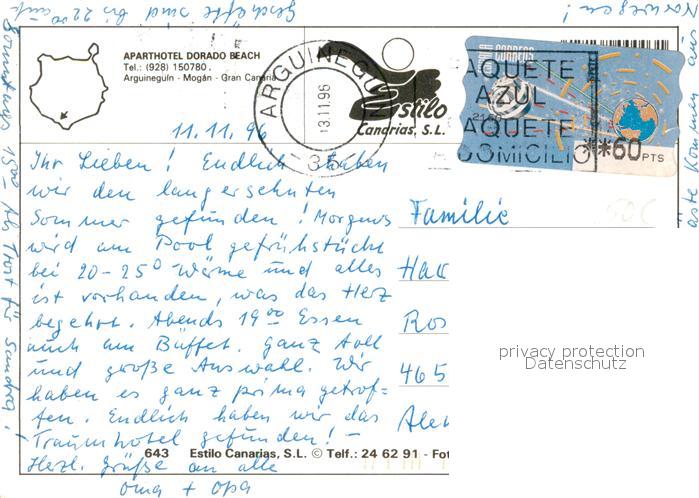 Geschäfte sind bis 22 00 auf
Norwegen!
APARTHOTEL DORADO BEACH
Tel.: (928) 150780.
Arguineguín - Mogán - Gran Canaria
ARGUINEGUIN
13.11.96
Estilo
Canarias, S.L.
CORREOS
PAQUETE
AZUL
PAQUETE
DOMICILIO
**60 PTS
11.11.96
Ihr Lieben! Endlich haben
wir den langersehnten
Sommer gefunden! Morgens
wird am Pool gefrühstückt
bei 20-25° Wärme und alles
ist vorhanden, was das Herz
begehrt. Abends 19 00 Essen
auch am Büffet. Ganz toll
und große Auswahl. Wir
haben es ganz prima getrof=
fen. Endlich haben wir das
Traumhotel gefunden! -
Herzl. Grüße an alle
Oma + Opa
Familie
Ros
465
privacy protection
Datenschutz
643 Estilo Canarias, S.L. © Telf.: 24 62 91 - Fot
Sonntags 15 00
Trost für Sandra!
kommen aus